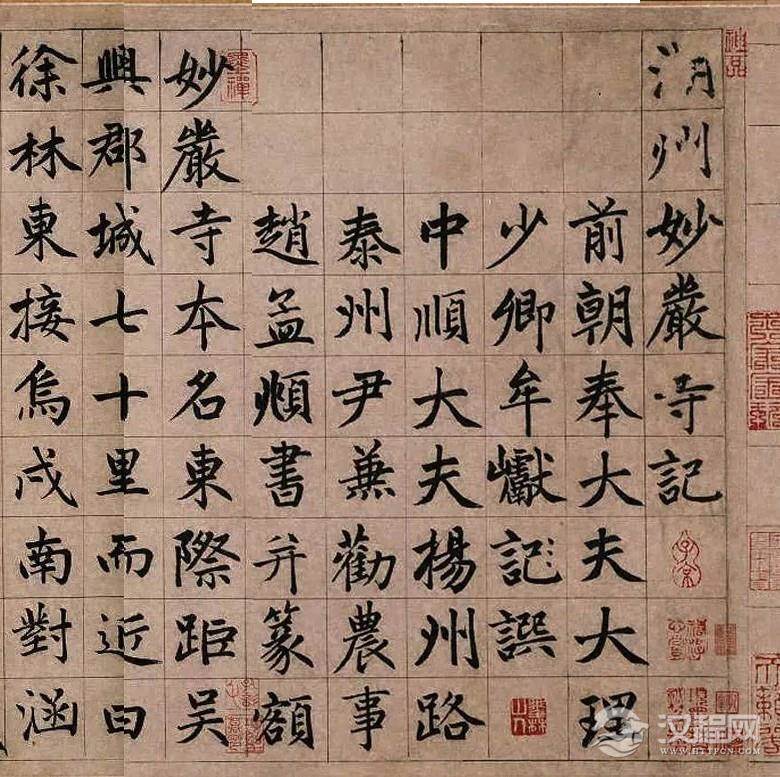 湖州妙嚴寺記
前朝奉大夫大理
少卿牟巘記譔
中順大夫楊州路
泰州尹兼勸農事
趙孟頫書并篆額
妙嚴寺本名東際距吳
興郡城七十里而近曰
徐林東接烏戍南對涵
汉程网
HTTPCN.COM